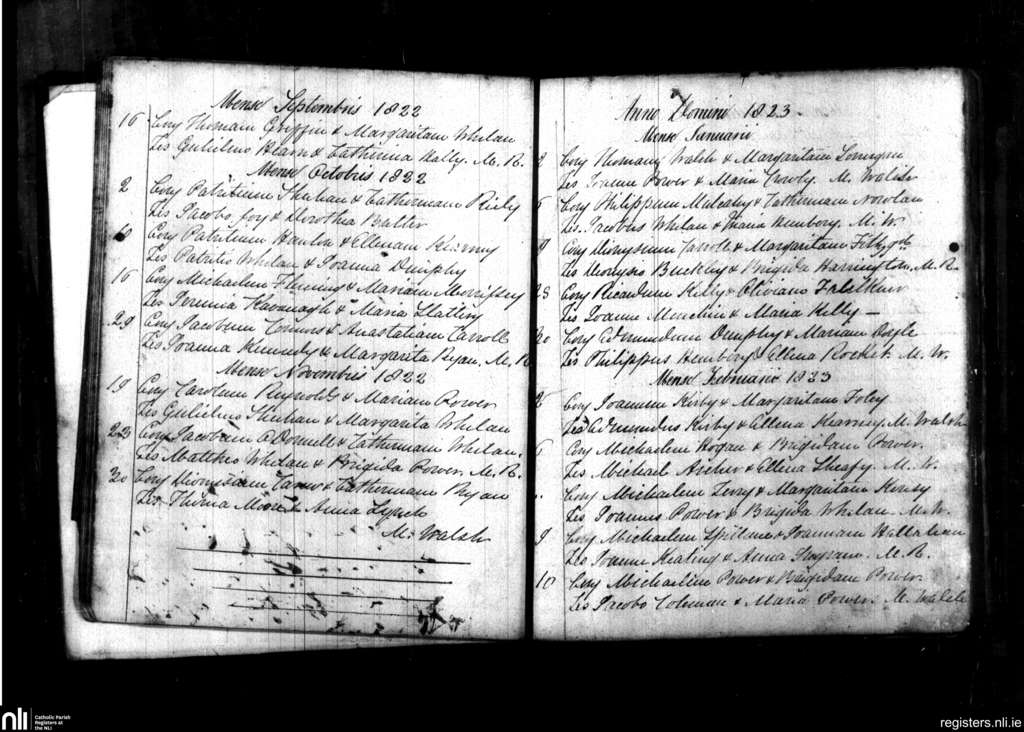 Mense Septembris 1822
16 Conj Thomam Griffin & Margaritam Whelan
Tes Gulielmo & Catherina Kelly. M. R.
Mense Octobris 1822
2 Conj Patritium Phelan & Catherinam Rielly
Tes Jacobo Joy & Dorothea
10 Conj Patritium Hanlon & Ellenam
Tes Patritio Whelan & Joanna Dunphy
16 Conj Michaelem Fleming & Mariam Morrissey
Tes Jeremia Kavanagh & Maria Slattery
29 Conj Jacobum Connors & Anastatiam Carroll
Tes Joanna Kennedy & Margarita Ryan. M. R
Mense Novembris 1822
19 Conj Carolum Reynolds & Mariam Power
Tes Gulielmo Phelan & Margarita Whelan
23 Conj Jacobum O Donnell & Catherinam Whelan.
Tes Mattheo Whelan & Brigida Power. M. R.
30 Conj Dionysium & Catherinam Ryan
Tes Thoma Moore & Anna Lynch
M. Walsh
Anno Domini 1823.
Mense Januarii
Conj Thomam Walsh & Margaritam Lonergan
Tes Joanne Power & Maria Crowly. M. Walsh
Conj Philippum Mulcahy & Catherinam Nowlan
Tes Jacobus Whelan & Maria Hembery. M. W.
9 Conj Dionysium & Margaritam Fitzgd.
Tes Dionysio Buckley & Brigida Harrington. M. R.
28 Conj Ricardum Kelly &
Tes Joanne & Maria Kelly —
30 Conj Edmundum Dunphy & Mariam Boyle
Tes Philippus Hembery & Ellena Rocket. M. W.
Mense Februario 1823
Conj Joannem Kirby & Margaritam Foley
Tes Edmundus Kirby & Ellena Kearney M. Walsh
6 Conj Michaelem Hogan & Brigidam Power.
Tes Michael Archer & Ellena Sheafy. M. W.
Conj Michaelem Terry & Margaritam
Tes Joannes Power & Brigida Whelan. M. W.
9 Conj Michaelem & Joannam Halloran
Tes Joanne Keating & Anna M. R.
10 Conj Michaelem Power & Brigidam Power.
Tes Jacobo Coleman & Maria Power. M. Walsh
nli
Catholic Parish
Registers at
the NLI
registers.nli.ie